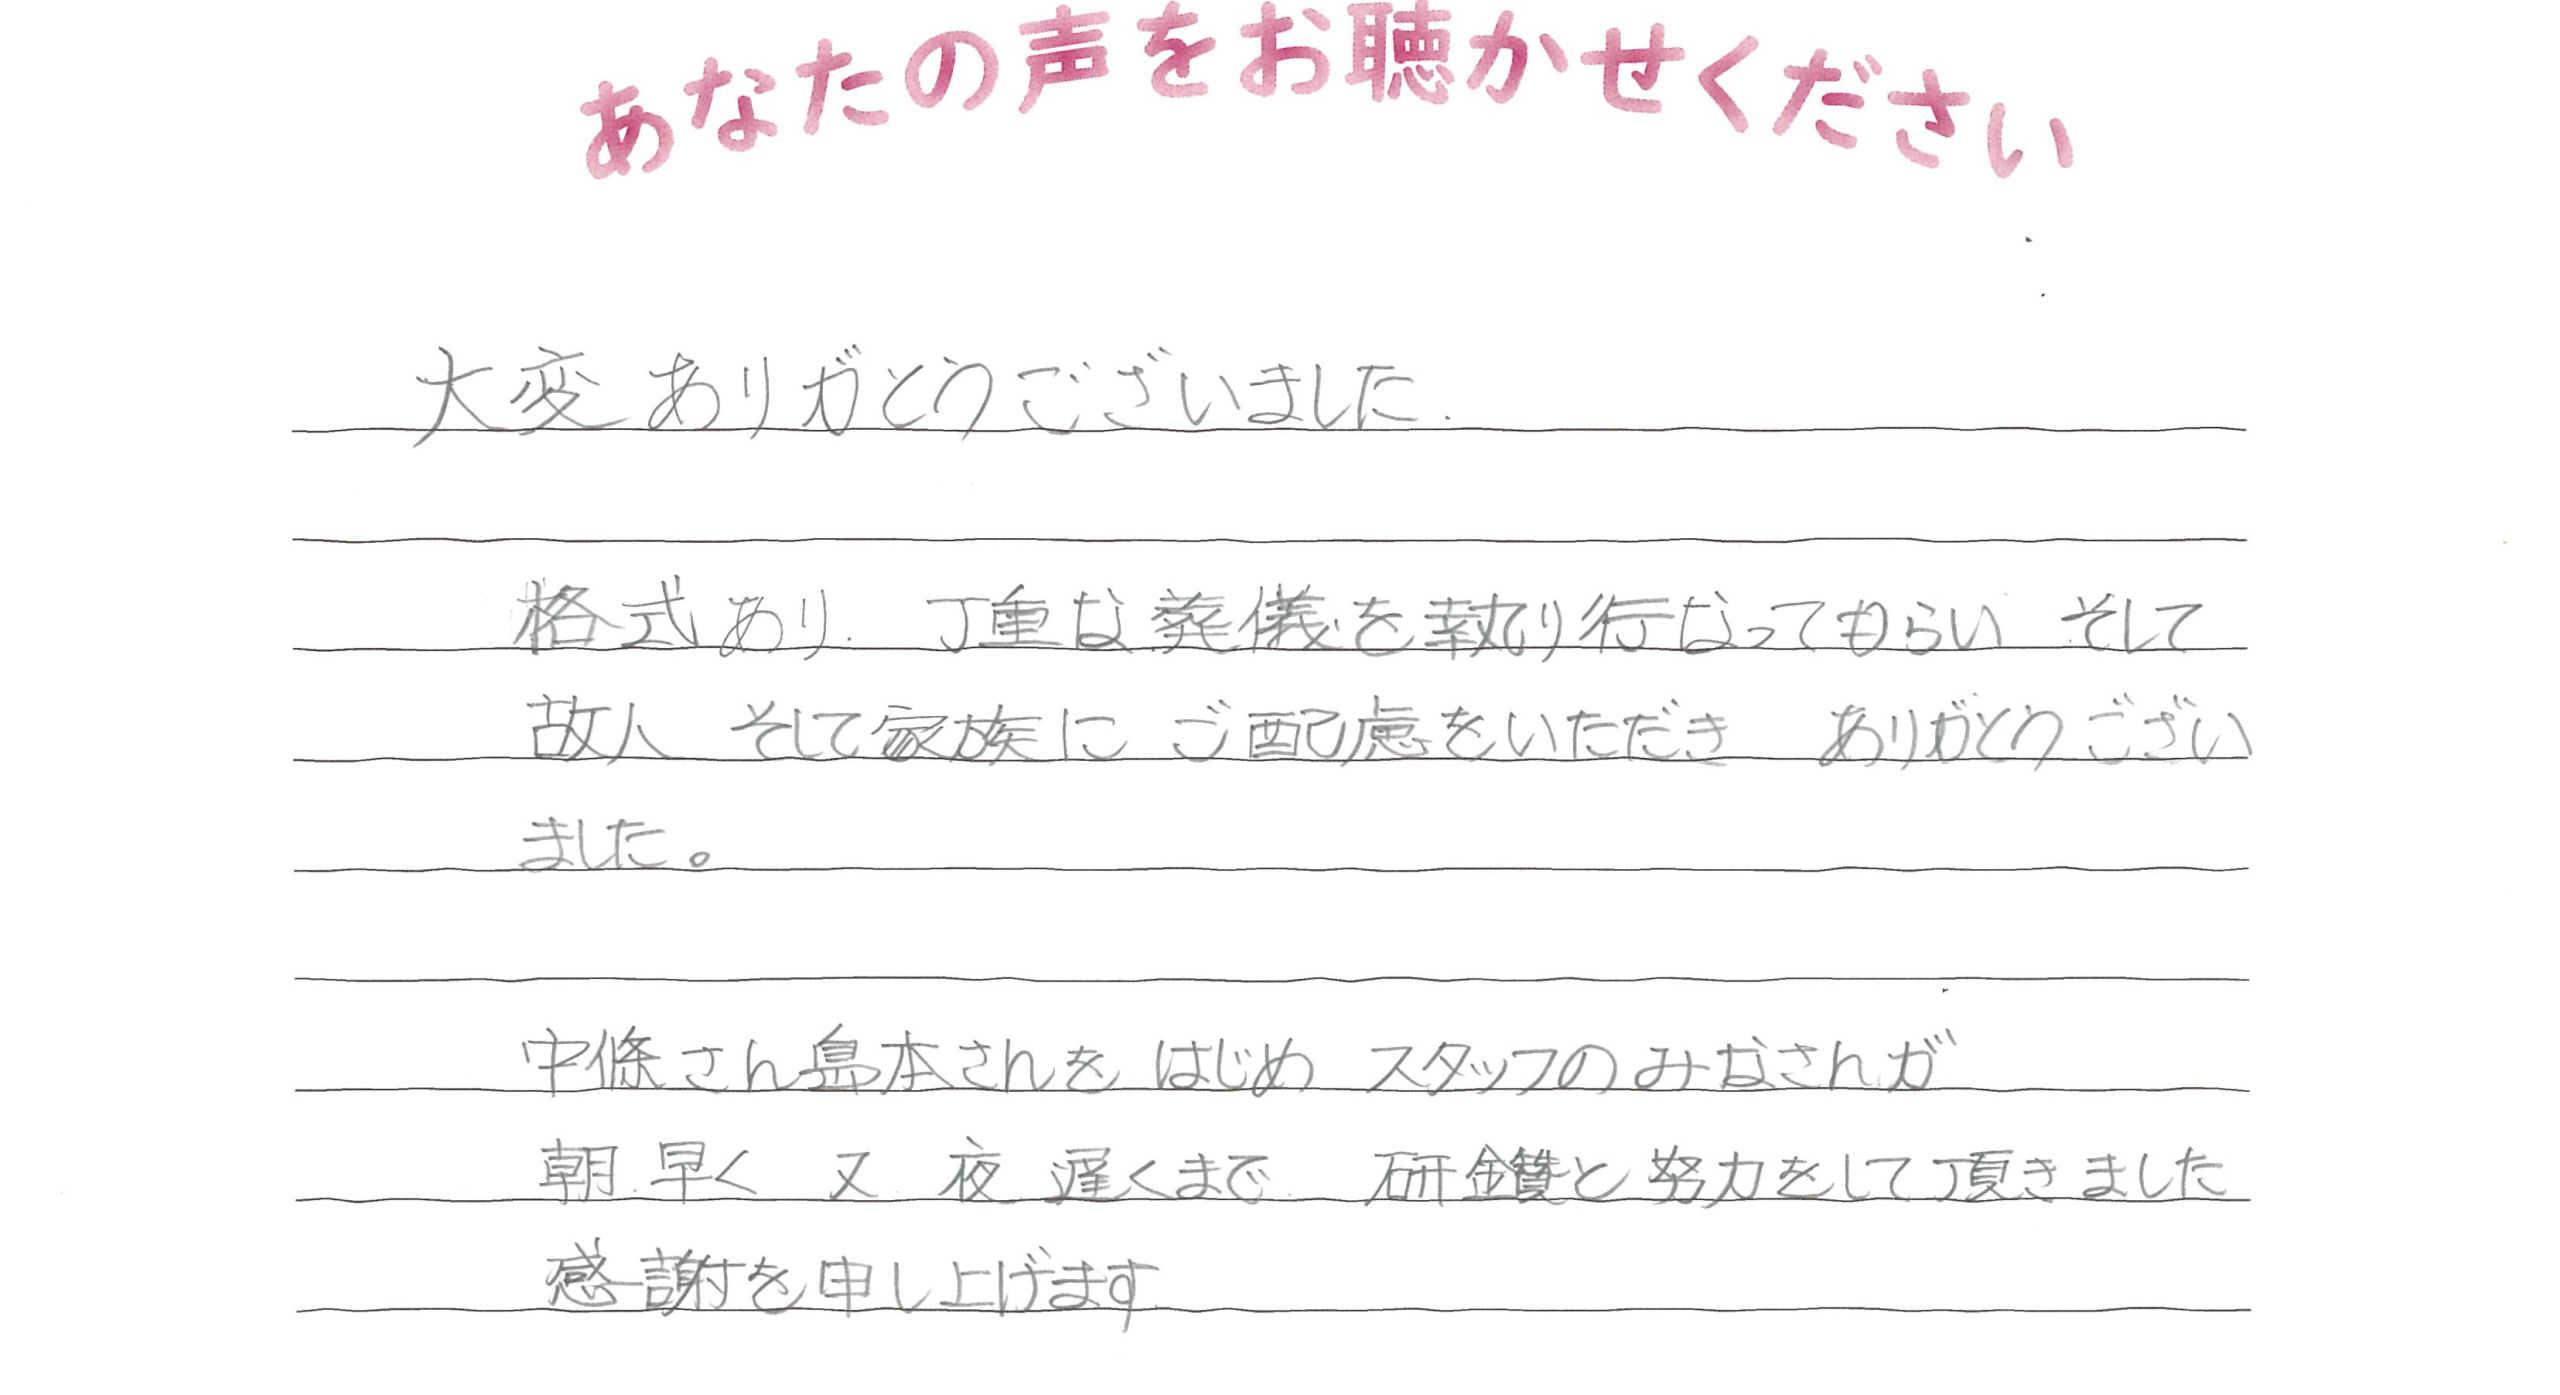 あなたの声をお聴かせください
大変ありがとうございました.
格式あり. 丁重な葬儀を執り行なってもらい そして
故人 そして家族に ご配慮をいただき ありがとうござい
ました。
中條さん島本さんを はじめ スタッフのみなさんが
朝早く 又 夜 遅くまで 研鑚と努力をして頂きました
感謝を申し上げます